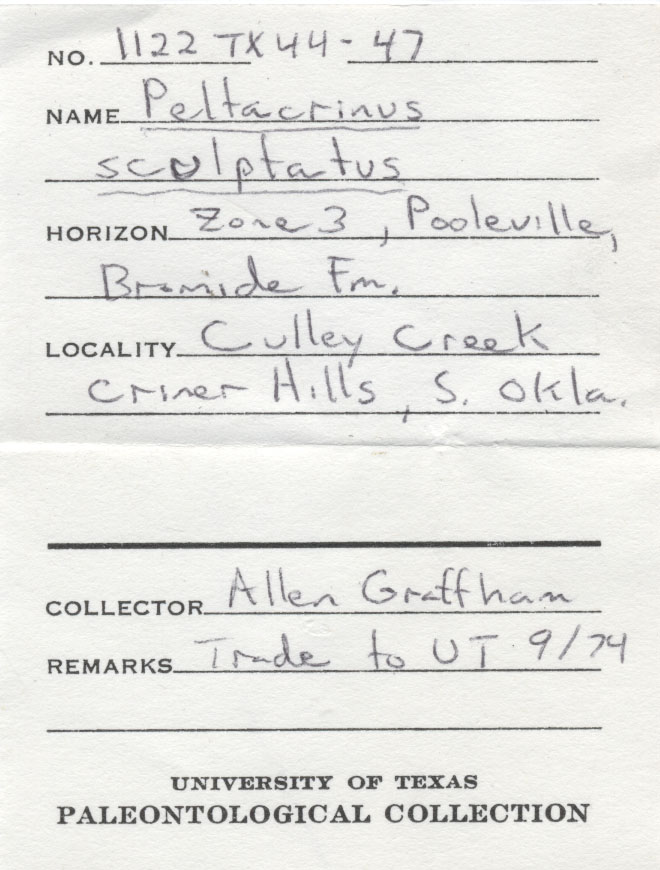 NO. 1122 TX 44-47
NAME Peltacrinus
sculptatus
HORIZON Zone 3, Pooleville,
Bromide Fm.
LOCALITY Culley Creek
Criner Hills, S. Okla.
COLLECTOR Allen Graffham
REMARKS Trade to UT 9/74
UNIVERSITY OF TEXAS
PALEONTOLOGICAL COLLECTION